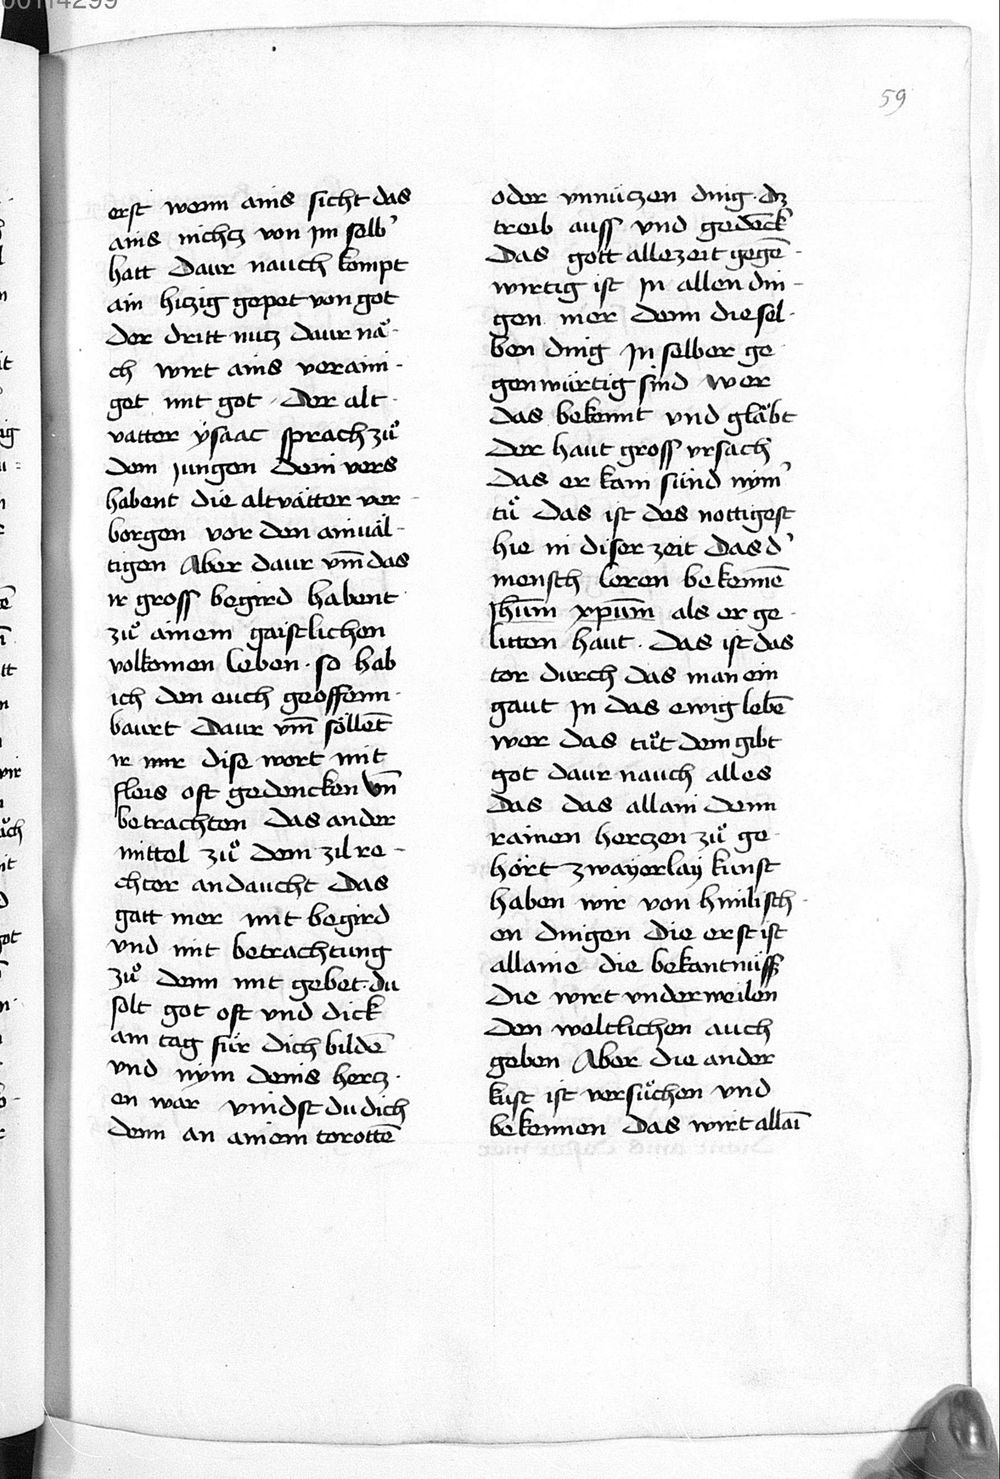 59
erst wenn ains sicht das
ains nichtz von im selb'
hatt Daur nauch kompt
ain hitzig gepet von got
Der dritt nutz daur nǎ-
ch wirt ains veraini-
get mit got. Der alt
vatter ysaac sprach zů
dem jungen Dem vers
habent die altvätter ver-
borgen vor den ainuäl-
tigen Aber daur vm̄ das
ir gross begird habent
zů ainem gaistlichen
volkomen leben. so hab
ich den euch geoffenn-
baurt Daur vm̄ söllet̄
ir mir dise wort mit
fleis oft gedencken vn̄
betrachten das ander
mittel zů dem zil re-
chter andaucht Das
gatt mer mit begird
vnd mit betrachtung
zů denn mit gebet. du
solt got oft vnd dick
am tag für dich bildē
vnd nym deins hertz-
en war vindst du dich
denn an ainem torottē
oder vnnützen ding. dz
treib auss vnd gedēck'
Das gott allezeit gegē-
wirtig ist In allen din-
gen mer denn die sel-
ben ding In selber ge
genwürtig sind wer
das bekennt vnd glåbt
der haut gross vrsach
Das er kain sünd nym'
tů Das ist des nottigest
hie in diser zeit Das d'
mensch leren bekennē
Jhūm xpūm als er ge-
litten haut. Das ist das
tor durch das man ein
gaut In das ewig lebē
wer das tůt dem gibt
got daur nauch alles
das das allain denn
rainen hertzen zů ge
hört zwayerlay kunst
haben wir von himlisch-
en dingen Die erst ist
allaine die bekantnüss
Die wirt vnderweilen
den weltlichen auch
geben Aber die ander
kūst ist versůchen vnd
bekennen Das wirt allaī